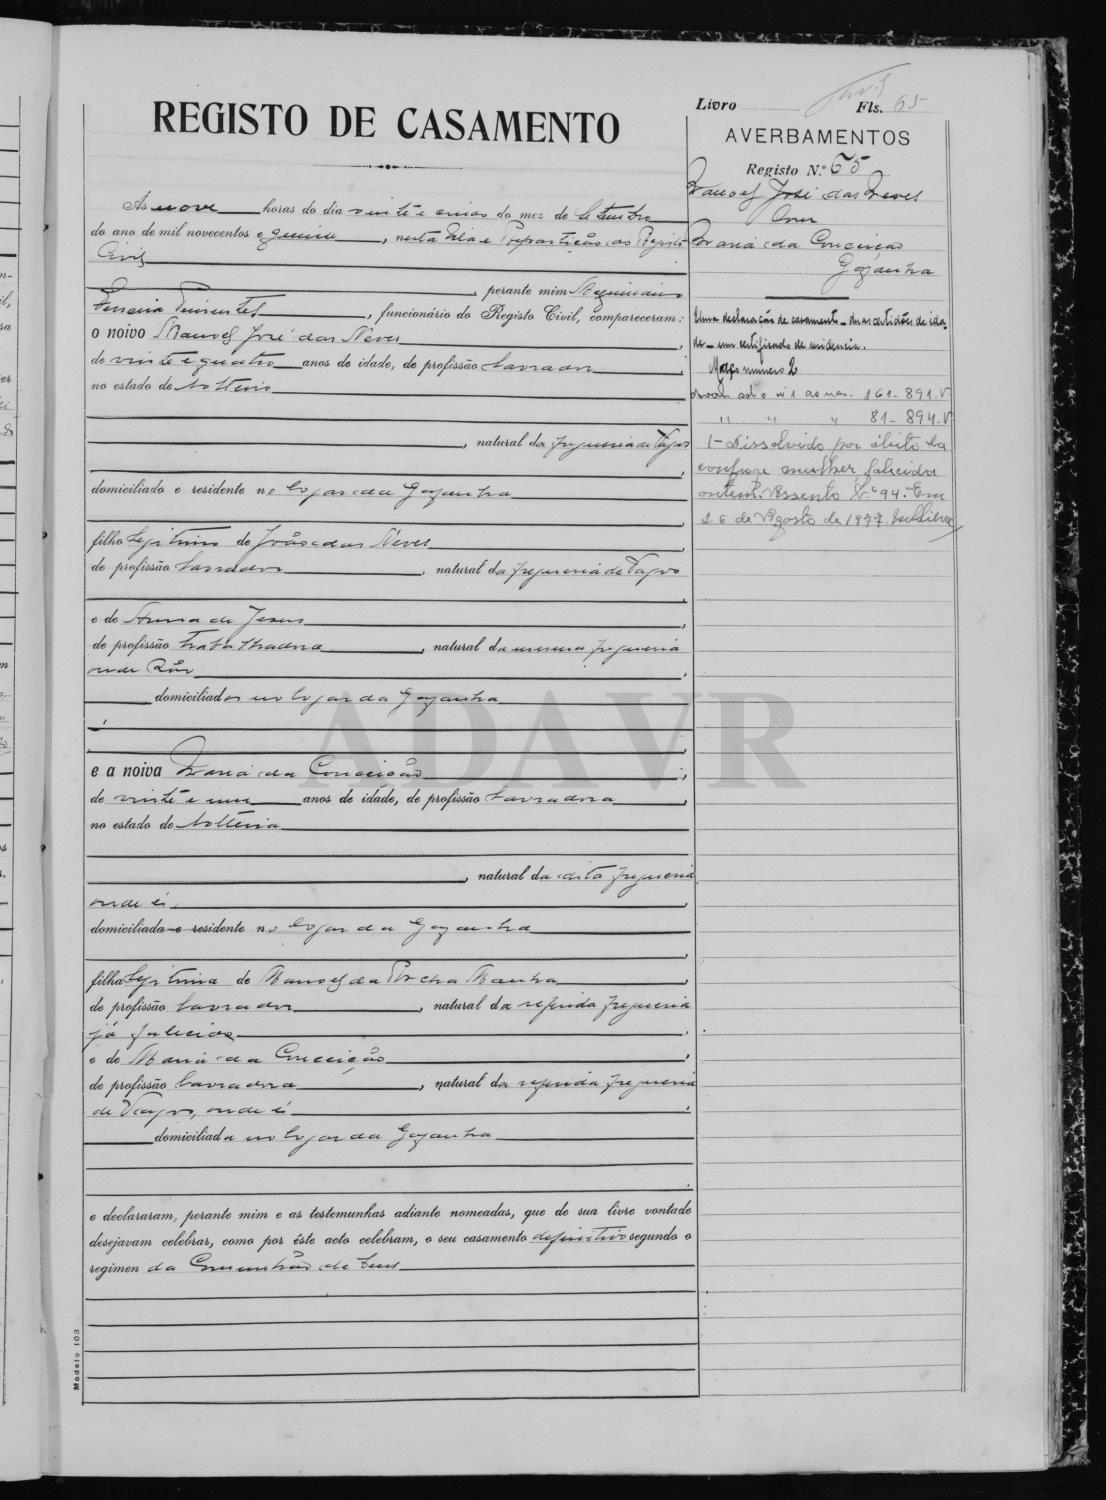 Livro Fls. 65
REGISTO DE CASAMENTO
AVERBAMENTOS
Registo N.º 65
Manoel José das Neves
com
Maria da Conceição
Gafanha
Uma declaração de casamento - duas certidões de ida-
de - um certificado de residencia.
Maço numero 2
161-891-V
" " " 81-894-V
1-Dissolvido por óbito da
conjuge mulher, falecida
ontem. Assento N.º 94. Em
26 de Agosto de 1977.
Ás nove horas do dia vinte e cinco do mez de Setembro
do ano de mil novecentos e quinze, nesta Vila e Repartição do Registo
Civil
, perante mim
Ferreira Pimentel, funcionário do Registo Civil, compareceram:
o noivo Manoel José das Neves
de vinte e quatro anos de idade, de profissão lavrador,
no estado de solteiro
, natural da freguesia de Vagos
domiciliado e residente no logar da Gafanha
filho legitimo de João das Neves
de profissão lavrador, natural da freguesia de Vagos
e de Anna de Jesus
de profissão trabalhadora, natural da mesma freguesia
onde são
domiciliados no logar da Gafanha
e a noiva Maria da Conceição
de vinte e um anos de idade, de profissão lavradora,
no estado de solteira
, natural da dita freguesia
onde é
domiciliada e residente no logar da Gafanha
filha legitima de Manoel da Rocha Manha
de profissão lavrador, natural da referida freguesia
já falecido
e de Maria da Conceição
de profissão lavradora, natural da referida freguesia
de Vagos, onde é
domiciliada no logar da Gafanha
e declararam, perante mim e as testemunhas adiante nomeadas, que de sua livre vontade
desejavam celebrar, como por êste acto celebram, o seu casamento definitivo segundo o
regimen da Comunhão de bens
Modelo 103
ADAVR